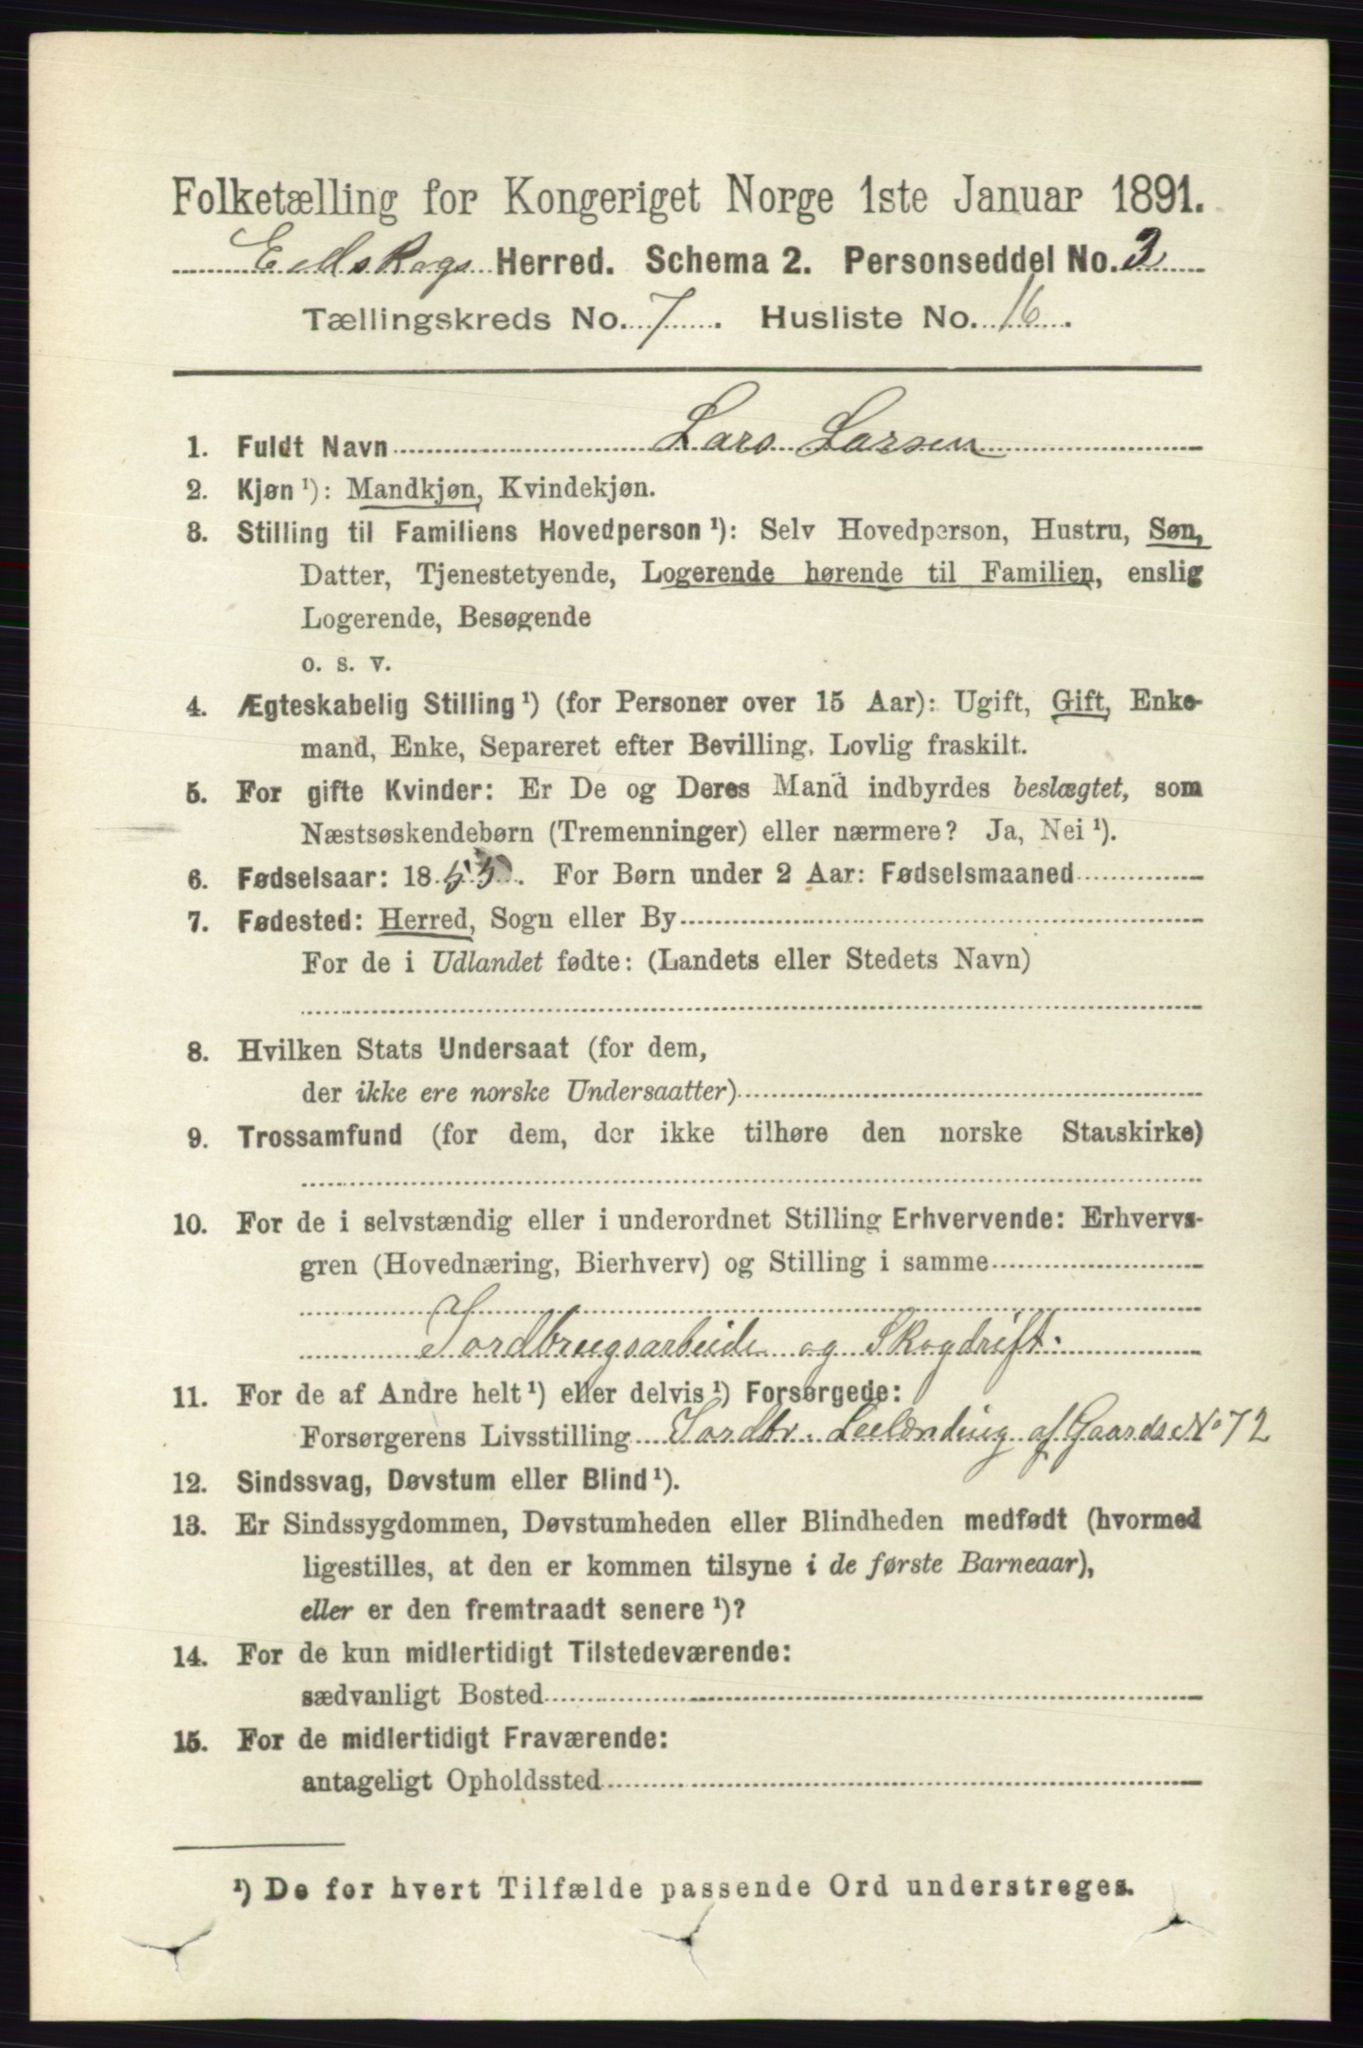 Folketælling for Kongeriget Norge 1ste Januar 1891.
Eidskogs Herred. Schema 2. Personseddel No. 3
Tællingskreds No. 7. Husliste No. 16.
1. Fuldt Navn Lars Larsen
2. Kjøn ¹): Mandkjøn, Kvindekjøn.
3. Stilling til Familiens Hovedperson ¹): Selv Hovedperson, Hustru, Søn,
Datter, Tjenestetyende, Logerende hørende til Familien, enslig
Logerende, Besøgende
o. s. v.
4. Ægteskabelig Stilling ¹) (for Personer over 15 Aar): Ugift, Gift, Enke-
mand, Enke, Separeret efter Bevilling, Lovlig fraskilt.
5. For gifte Kvinder: Er De og Deres Mand indbyrdes beslægtet, som
Næstsøskendebørn (Tremenninger) eller nærmere? Ja, Nei ¹).
6. Fødselsaar: 1855. For Børn under 2 Aar: Fødselsmaaned
7. Fødested: Herred, Sogn eller By
For de i Udlandet fødte: (Landets eller Stedets Navn)
8. Hvilken Stats Undersaat (for dem,
der ikke ere norske Undersaatter)
9. Trossamfund (for dem, der ikke tilhøre den norske Statskirke)
10. For de i selvstændig eller i underordnet Stilling Erhvervende: Erhvervs-
gren (Hovednæring, Bierhverv) og Stilling i samme
Jordbrugsarbeide og Skogdrift.
11. For de af Andre helt ¹) eller delvis ¹) Forsørgede:
Forsørgerens Livsstilling Jordbr. Leilænding af Gaards No 72
12. Sindssvag, Døvstum eller Blind ¹).
13. Er Sindssygdommen, Døvstumheden eller Blindheden medfødt (hvormed
ligestilles, at den er kommen tilsyne i de første Barneaar),
eller er den fremtraadt senere ¹)?
14. For de kun midlertidigt Tilstedeværende:
sædvanligt Bosted
15. For de midlertidigt Fraværende:
antageligt Opholdssted
¹) De for hvert Tilfælde passende Ord understreges.